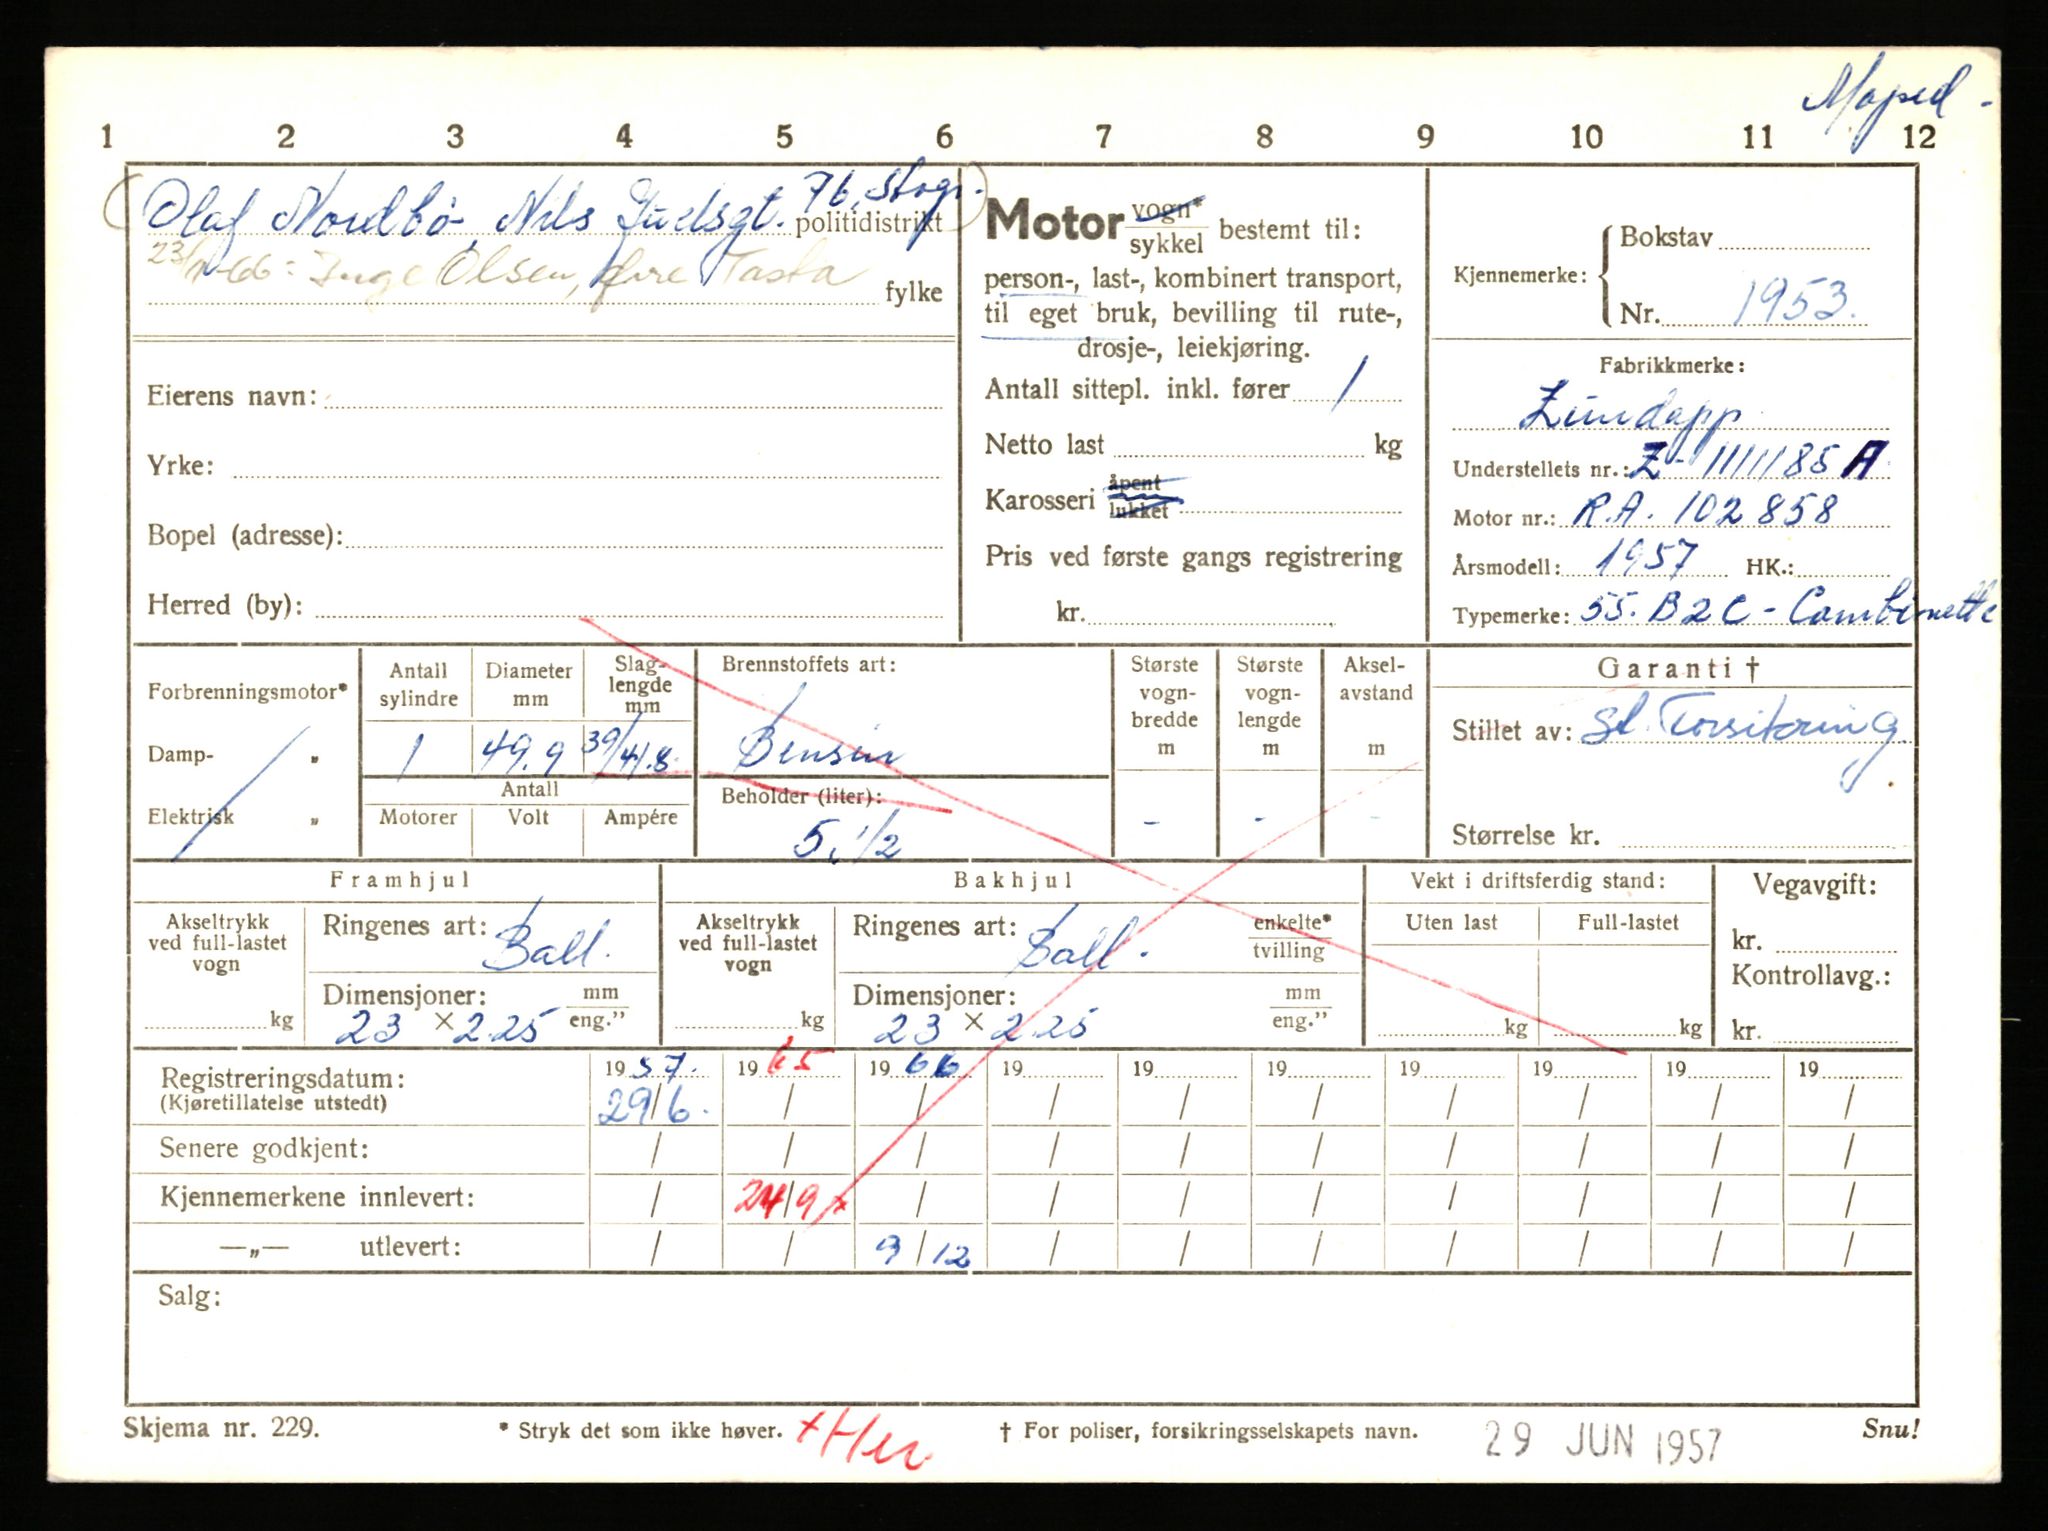 Moped -
1 2 3 4 5 6 7 8 9 10 11 12
(Olaf Nordbø, Nils Juelsgt. 76, Stvgr.)
politidistrikt
Inge Olsen, Øvre Tasta
fylke
Eierens navn:
Yrke:
Bopel (adresse):
Herred (by):
Motor vogn*
sykkel bestemt til:
person-, last-, kombinert transport,
til eget bruk, bevilling til rute-,
drosje-, leiekjøring.
Antall sittepl. inkl. fører 1
Netto last kg
Karosseri åpent
lukket
Pris ved første gangs registrering
kr.
Kjennemerke: Bokstav
Nr. 1953.
Fabrikkmerke:
Zundapp
Understellets nr.: Z-1111185 A
Motor nr.: R.A. 102858
Årsmodell: 1957 HK.:
Typemerke: 55. B2C - Combinette
Forbrenningsmotor*
Damp- „
Elektrisk „
Antall sylindre
Diameter mm
Slaglengde mm
1 49.9 39/41.8
Antall
Motorer Volt Ampére
Brennstoffets art:
Bensin
Beholder (liter):
5 1/2
Største vogn-bredde m
Største vogn-lengde m
Aksel-avstand m
- - -
Garanti †
Stillet av:
Størrelse kr.
Framhjul
Akseltrykk ved full-lastet vogn
kg
Ringenes art: Ball.
Dimensjoner: mm
eng."
23 x 2.25
Bakhjul
Akseltrykk ved full-lastet vogn
kg
Ringenes art: Ball. enkelte*
tvilling
Dimensjoner: mm
eng."
23 x 2.25
Vekt i driftsferdig stand:
Uten last Full-lastet
kg kg
Vegavgift:
kr.
Kontrollavg.:
kr.
Registreringsdatum: 1957. 1965 1966 19 19 19 19 19 19 19
(Kjøretillatelse utstedt) 29/6. / / / / / / / / /
Senere godkjent: / / / / / / / / / /
Kjennemerkene innlevert: / 24/9 x / / / / / / / /
—„— utlevert: / / 9/12 / / / / / / /
Salg:
Skjema nr. 229.
* Stryk det som ikke høver.
† For poliser, forsikringsselskapets navn.
29 JUN 1957
Snu!